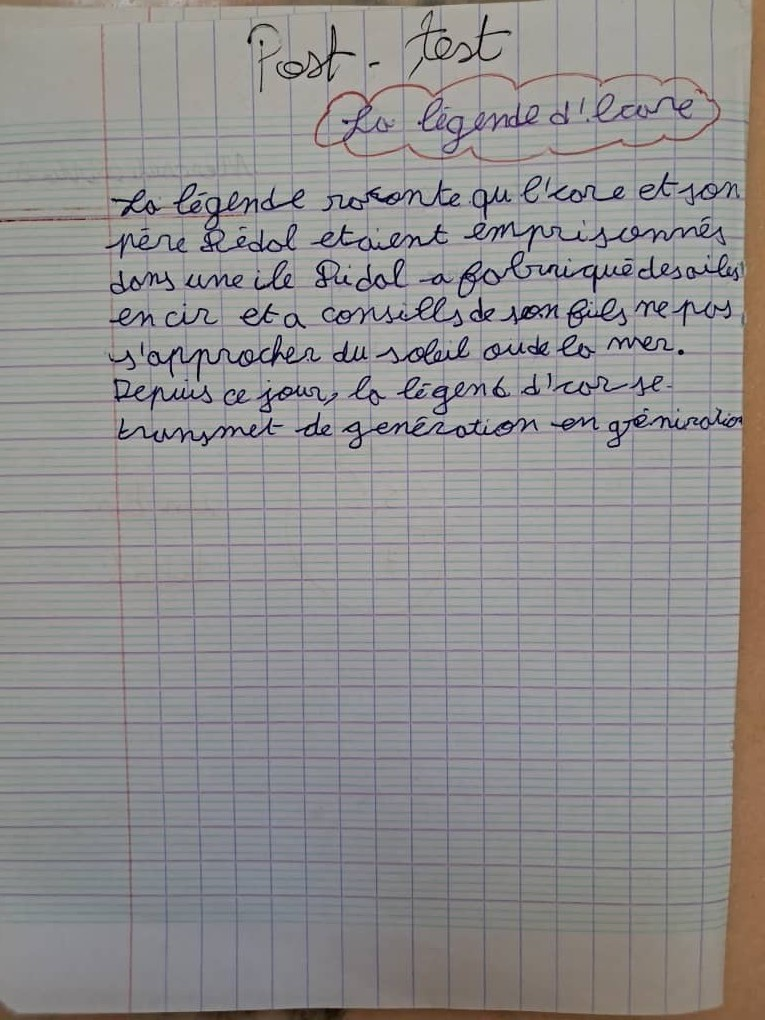 Post - test
La légende d'Icare
La légende raconte qu l'icare et son
père Dédal etaient emprisonnés
dans une ile Didal a fabriqué des ailes
en cir et a consills de son fils ne pas
s'approcher du soleil ou de la mer.
Depuis ce jour, la légend d'icar se
transmet de genération en géniration